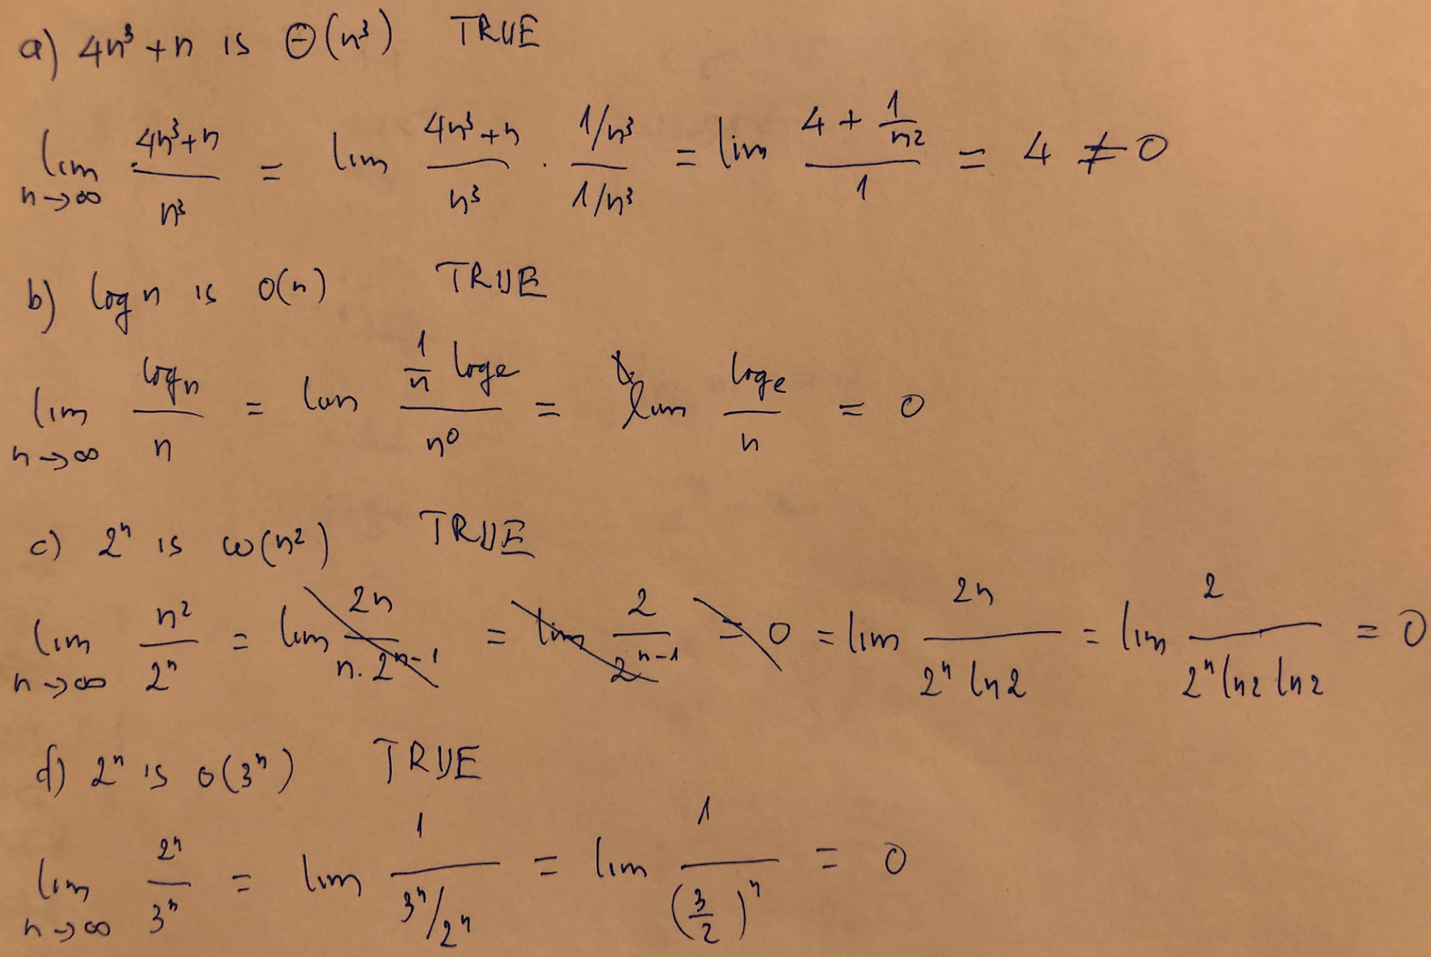 a) 4n³+n is Θ(n³) TRUE
lim n→∞ (4n³+n)/n³ = lim (4n³+n)/n³ · (1/n³)/(1/n³) = lim (4 + 1/n²)/1 = 4 ≠ 0
b) log n is o(n) TRUE
lim n→∞ log n/n = lim (1/n log e)/n⁰ = lim log e/n = 0
c) 2ⁿ is ω(n²) TRUE
lim n→∞ n²/2ⁿ = lim 2n/(n·2ⁿ⁻¹) = lim 2/2ⁿ⁻¹ = 0 = lim 2n/(2ⁿ ln2) = lim 2/(2ⁿ ln2 ln2) = 0
d) 2ⁿ is o(3ⁿ) TRUE
lim n→∞ 2ⁿ/3ⁿ = lim 1/(3ⁿ/2ⁿ) = lim 1/(3/2)ⁿ = 0